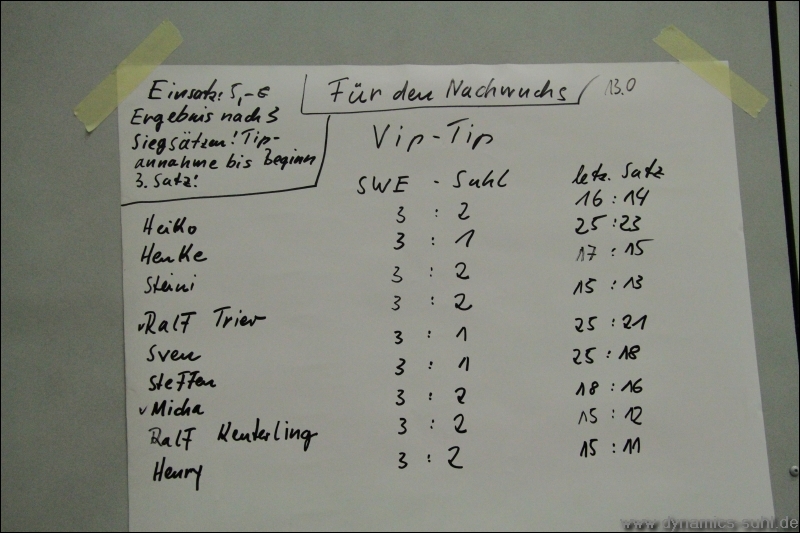 Einsatz: 5,-€
Ergebnis nach 3
Siegsätzen! Tip-
annahme bis Beginn
3. Satz!
Für den Nachwuchs
13.0
Vip-Tip
SWE - Suhl letz. Satz
Heiko 3 : 2 16 : 14
Henke 3 : 1 25 : 23
Steini 3 : 2 17 : 15
Ralf Trier 3 : 2 15 : 13
Sven 3 : 1 25 : 21
Steffen 3 : 1 25 : 18
Micha 3 : 2 18 : 16
Ralf Kenterling 3 : 2 15 : 12
Henry 3 : 2 15 : 11
www.dynamics-suhl.de